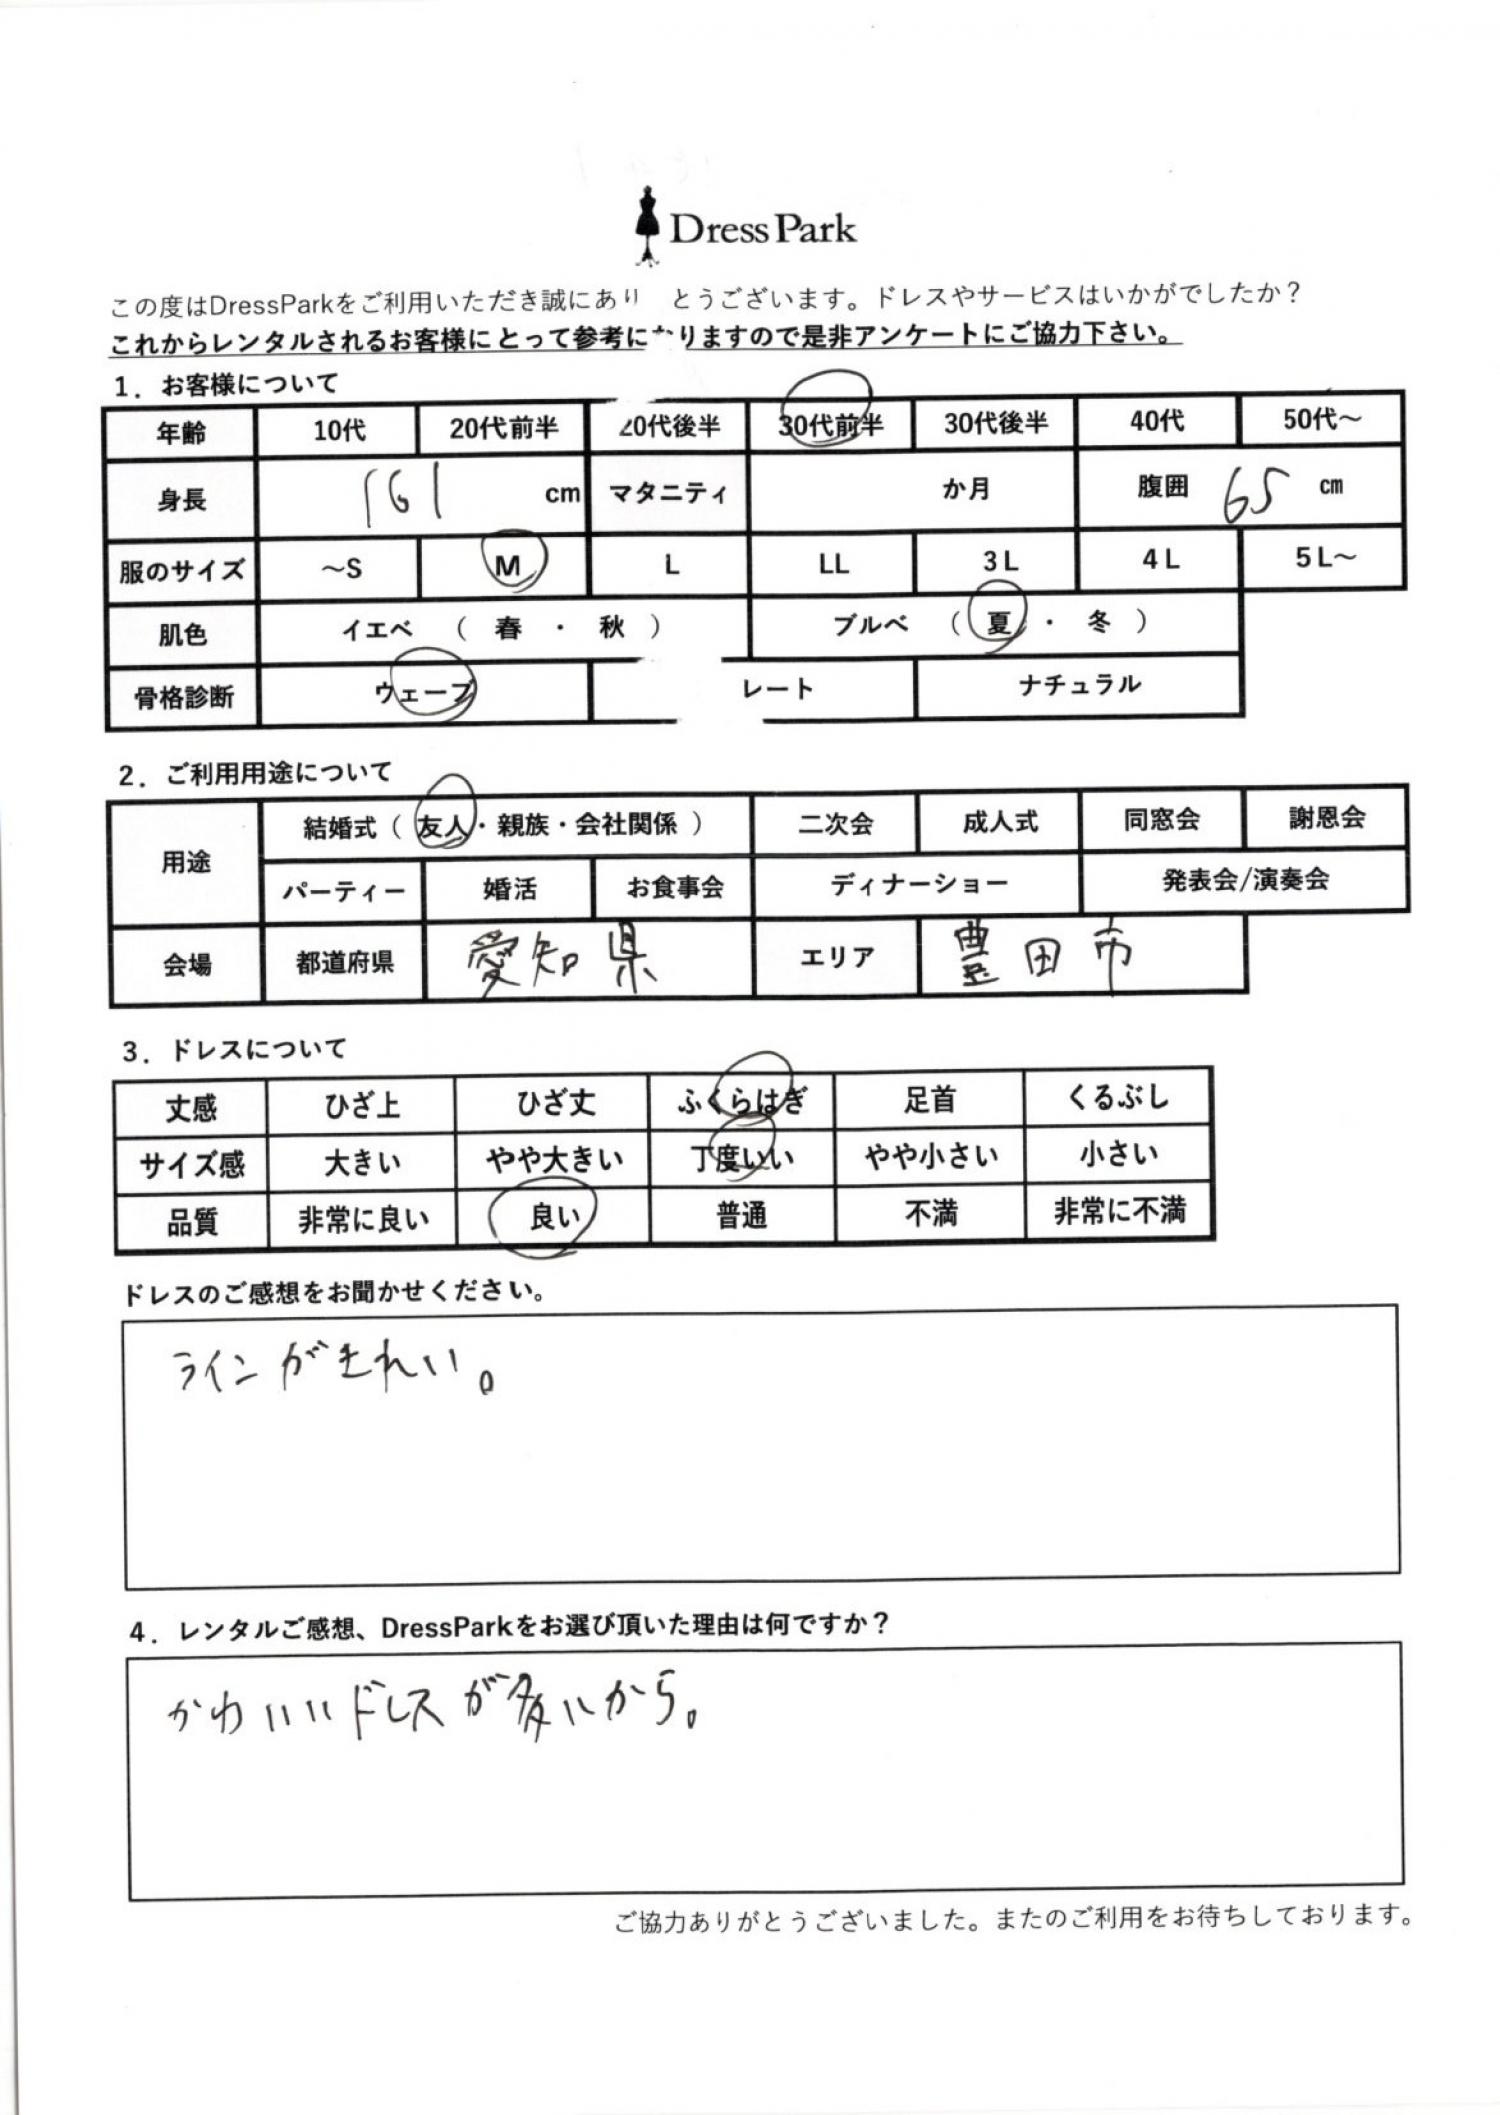 Dress Park
この度はDressParkをご利用いただき誠にあり とうございます。ドレスやサービスはいかがでしたか？
これからレンタルされるお客様にとって参考になりますので是非アンケートにご協力下さい。
1．お客様について
年齢 10代 20代前半 20代後半 30代前半 30代後半 40代 50代～
身長 161 cm マタニティ か月 腹囲 65 cm
服のサイズ ～S M L LL 3L 4L 5L～
肌色 イエベ （ 春 ・ 秋 ） ブルベ （ 夏 ・ 冬 ）
骨格診断 ウェーブ レート ナチュラル
2．ご利用用途について
用途 結婚式（ 友人・親族・会社関係 ） 二次会 成人式 同窓会 謝恩会
パーティー 婚活 お食事会 ディナーショー 発表会/演奏会
会場 都道府県 愛知県 エリア 豊田市
3．ドレスについて
丈感 ひざ上 ひざ丈 ふくらはぎ 足首 くるぶし
サイズ感 大きい やや大きい 丁度いい やや小さい 小さい
品質 非常に良い 良い 普通 不満 非常に不満
ドレスのご感想をお聞かせください。
ラインがきれい。
4．レンタルご感想、DressParkをお選び頂いた理由は何ですか？
かわいいドレスが多いから。
ご協力ありがとうございました。またのご利用をお待ちしております。